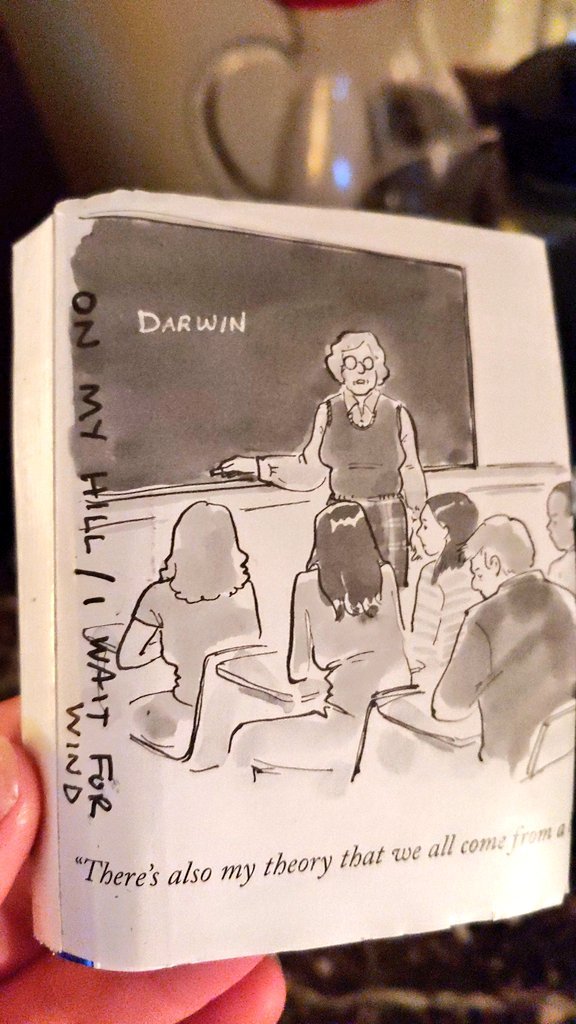 DARWIN
ON MY HILL / I WAIT FOR
WIND
"There's also my theory that we all come from a